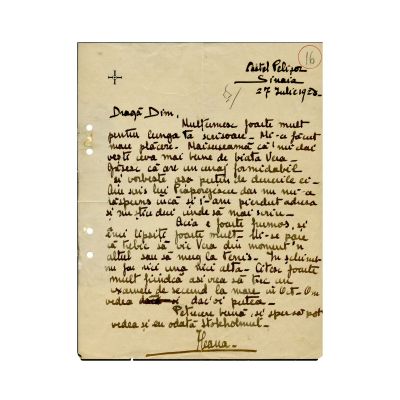 16
Castel Pelişor
Sinaia
27 Iulie 1938.
Dragă Dim,
Mulţumesc foarte mult
pentru lunga ta scrisoare. Mi-a făcut
mare plăcere. Mai înseamnă că 'mi dai
veşti ceva mai bune de biata Vera.
Găsesc că are un curaj formidabil
şi vorbeşte aşa puţin de durerile ei.
Am scris lui dar nu mi-a
răspuns încă şi i-am pierdut adresa
şi nu ştiu deci unde să mai scriu.
Aici e foarte frumos, şi
lipseşte foarte mult. Mi-se pare
că trebue să vie Vera din moment 'n
altul sau să merg la Venis. In schimb
nu fac nici una nici alta. Citesc foarte
mult fiindcă aşi vrea să trec un
examen de second la mare O.T. Om
vedea şi dac'oi putea.
Petrecere bună, şi sper să pot
vedea şi eu odată Stokholmul.
Ileana.